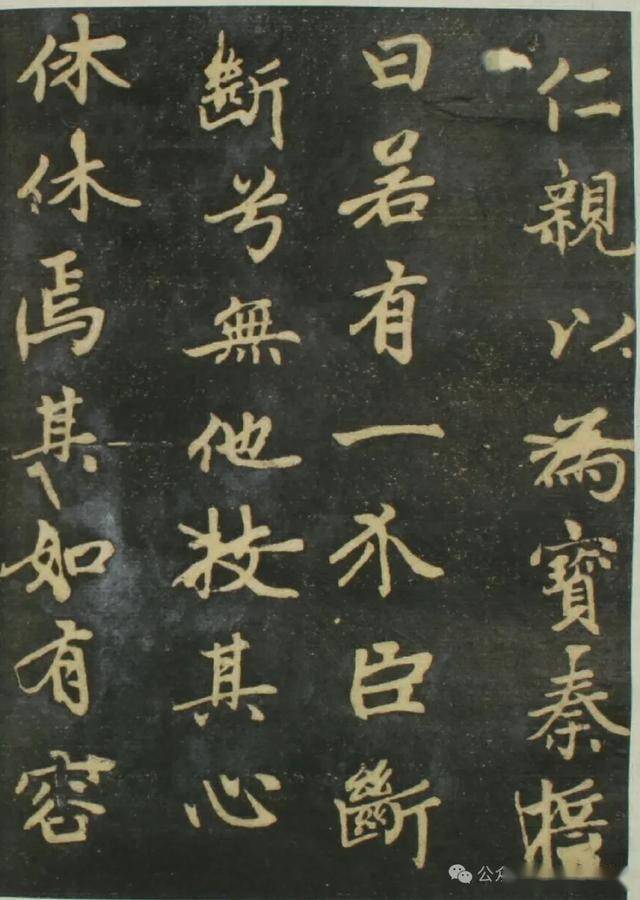 仁親以為寶秦誓
曰若有一介臣斷
斷兮無他技其心
休休焉其如有容
公众